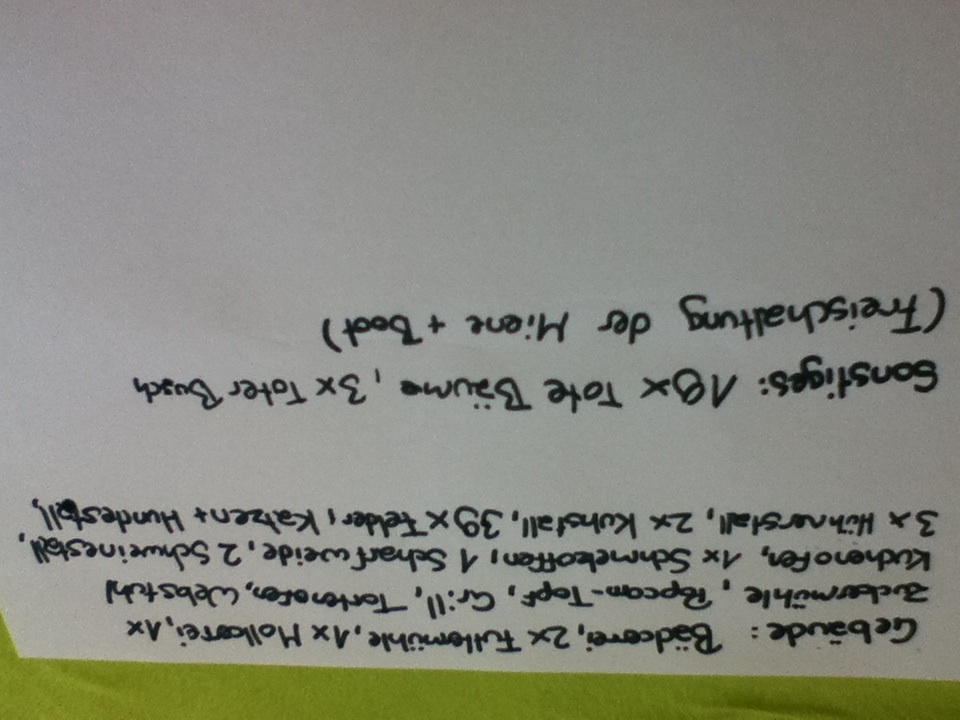 Gebäude: Bäckerei, 2x Futtermühle, 1x Molkerei, 1x
Zuckermühle, Popcorn-Topf, Grill, Tortenofen, Webstuhl
Kuchenofen, 1x Schmelzoffen, 1 Scharfweide, 2 Schweinestall,
3x Hühnerstall, 2x Kuhstall, 39x Felder, Katzen+ Hundestall,
Sonstiges: 19x Tote Bäume, 3x Toter Busch
(Freischaltung der Miene + Boot)